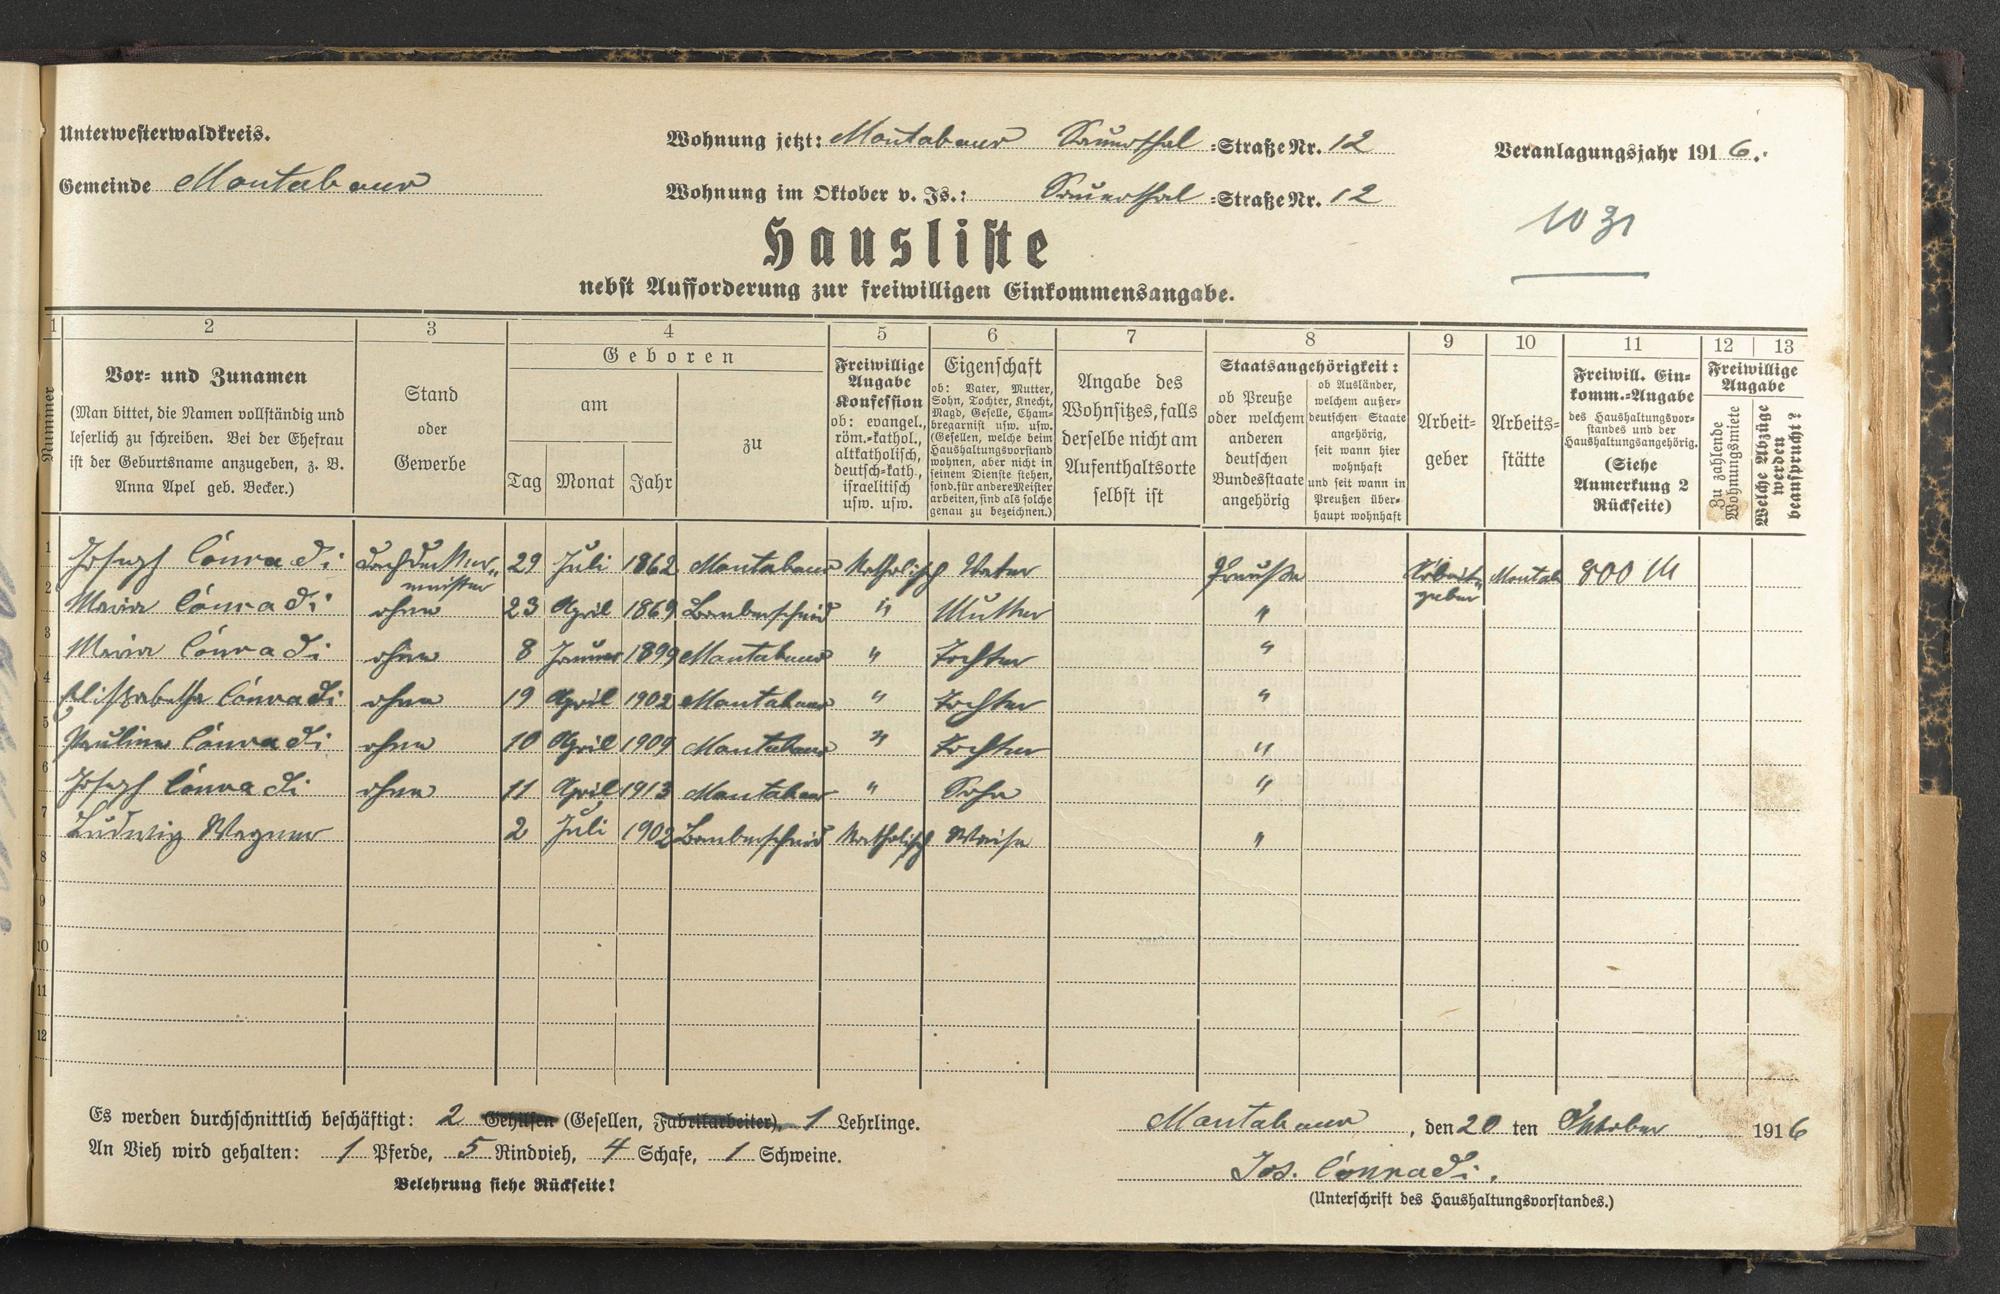 Unterwesterwaldkreis.
Gemeinde Montabaur
Wohnung jetzt: Montabaur Sauerthal =Straße Nr. 12
Wohnung im Oktober v. Js.: Sauerthal =Straße Nr. 12
Veranlagungsjahr 1916.
Hausliste
nebst Aufforderung zur freiwilligen Einkommensangabe.
1 2 3 4 5 6 7 8 9 10 11 12 13
Nummer
Vor- und Zunamen
(Man bittet, die Namen vollständig und
leserlich zu schreiben. Bei der Ehefrau
ist der Geburtsname anzugeben, z. B.
Anna Apel geb. Becker.)
Stand
oder
Gewerbe
Geboren
am
Tag Monat Jahr
zu
Freiwillige
Angabe
Konfession
ob: evangel.,
röm.-kathol.,
altkatholisch,
deutsch-kath.,
israelitisch
usw. usw.
Eigenschaft
ob: Vater, Mutter,
Sohn, Tochter, Knecht,
Magd, Geselle, Cham-
bregarnist usw. usw.
(Gesellen, welche beim
Haushaltungsvorstand
wohnen, aber nicht in
seinem Dienste stehen,
sond. für andere Meister
arbeiten, sind als solche
genau zu bezeichnen.)
Angabe des
Wohnsitzes, falls
derselbe nicht am
Aufenthaltsorte
selbst ist
Staatsangehörigkeit:
ob Preuße
oder welchem
anderen
deutschen
Bundesstaate
angehörig
ob Ausländer,
welchem außer-
deutschen Staate
angehörig,
seit wann hier
wohnhaft
und seit wann in
Preußen über-
haupt wohnhaft
Arbeit-
geber
Arbeits-
stätte
Freiwill. Ein-
komm.-Angabe
des Haushaltungsvor-
standes und der
Haushaltungsangehörig.
(Siehe
Anmerkung 2
Rückseite)
Freiwillige
Angabe
Zu zahlende
Wohnungsmiete
Welche Abzüge
werden
beansprucht?
1 Joseph Conradi Dachdecker- 29 Juli 1862 Montabaur Katholisch Vater Preuße Arbeit- Montab 800 M
meister geber
2 Maria Conradi ohne 23 April 1869 Bamberscheid " Mutter "
3 Maria Conradi ohne 8 Januar 1899 Montabaur " Tochter "
4 Elisabetha Conradi ohne 19 April 1902 Montabaur " Tochter "
5 Paulina Conradi ohne 10 April 1909 Montabaur " Tochter "
6 Joseph Conradi ohne 11 April 1913 Montabaur " Sohn "
7 Ludwig Wagner 2 Juli 1902 Bamberscheid Katholisch Waise "
8
9
10
11
12
Es werden durchschnittlich beschäftigt: 2 Gehilfen (Gesellen, Fabrikarbeiter), 1 Lehrlinge.
An Vieh wird gehalten: 1 Pferde, 5 Rindvieh, 4 Schafe, 1 Schweine.
Belehrung siehe Rückseite!
Montabaur, den 20 ten Oktober 1916
Jos. Conradi.
(Unterschrift des Haushaltungsvorstandes.)